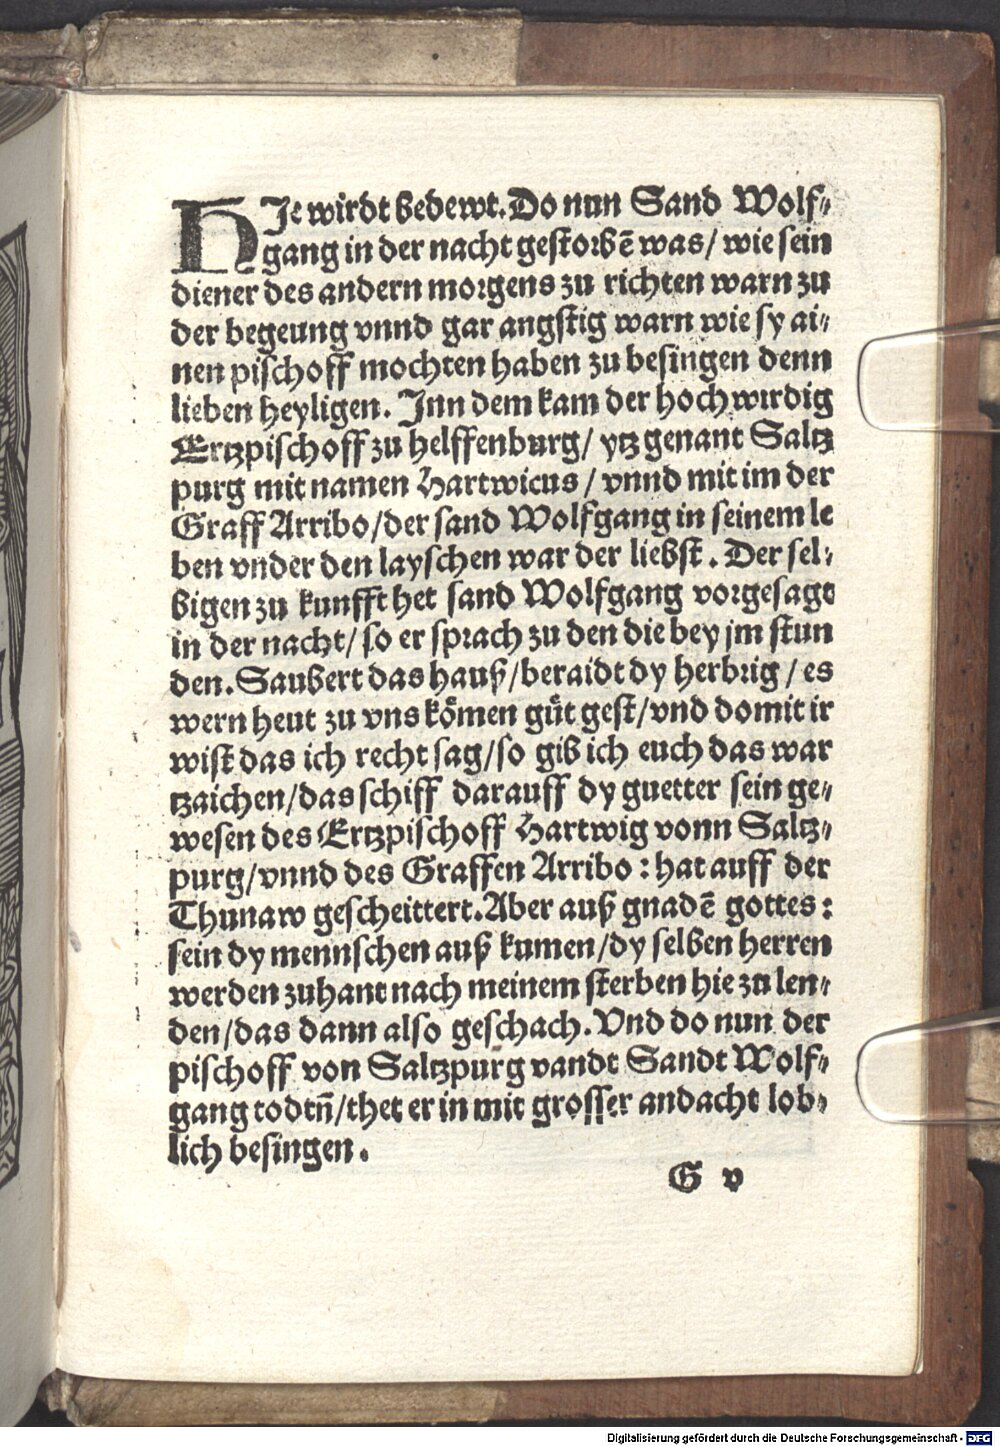 HJe wirdt bedewt. Do nun Sand Wolf⸗
gang in der nacht gestorbē was/ wie sein
diener des andern morgens zu richten warn zu
der begeung vnnd gar angstig warn wie sy ai⸗
nen pischoff mochten haben zu besingen denn
lieben heyligen. Jnn dem kam der hoch wirdig
Ertzpischoff zu helffenburg/ ytz genant Saltz
purg mit namen Hartwicus/ vnnd mit im der
Graff Arribo/der sand Wolfgang in seinem le
ben vnder den layschen war der liebst. Der sel⸗
bigen zu kunfft het sand Wolfgang vorgesagt
in der nacht/ so er sprach zu den die bey jm stun
den. Saubert das hauß/beraidt dy herbrig/ es
wern heut zu vns kömen güt gest/vnd domit ir
wist das ich recht sag/so gib ich euch das war
tzaichen/das schiff darauff dy guetter sein ge⸗
wesen des Ertzpischoff Hartwig vonn Saltz⸗
purg/vnnd des Graffen Arribo: hat auff der
Thunaw gescheittert. Aber auß gnadē gottes:
sein dy mennschen auß kumen/dy selben herren
werden zuhant nach meinem sterben hie zu len⸗
den/das dann also geschach. Vnd do nun der
pischoff von Saltzpurg vandt Sandt Wolf⸗
gang todtn̄/thet er in mit grosser andacht lob⸗
lich besingen.
G v
Digitalisierung gefördert durch die Deutsche Forschungsgemeinschaft - DFG